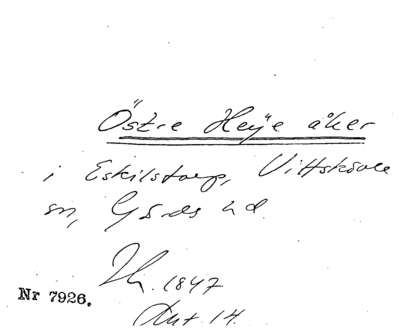 Östre Heije åker
i Eskilstorp, Vittskövle
sn, Gärds hd.
1847
Nr 7926.
Ant. 14.